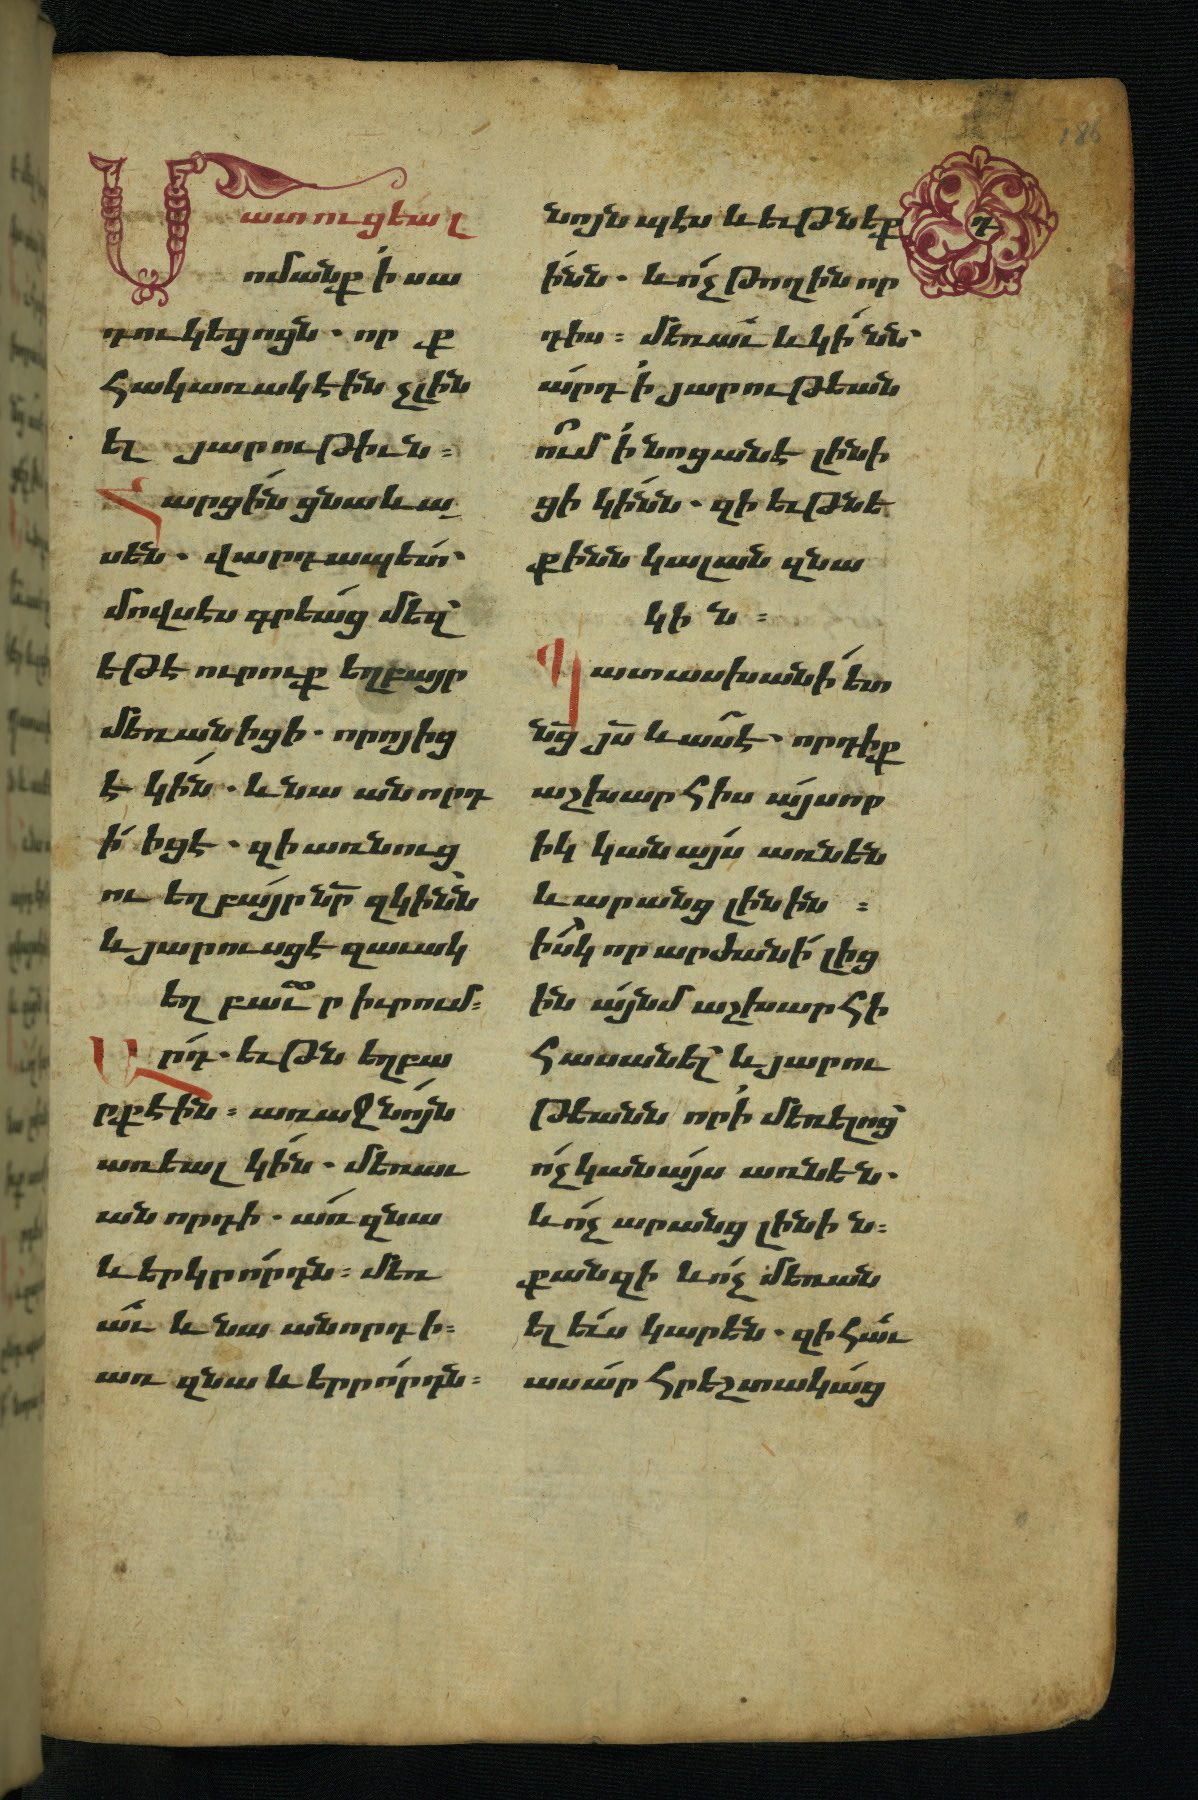 186
Մատուցեալ
ոմանք ի սա
դուկեցոցն. որ ք
հակառակէին չլին
ել յարութիւն։
Հարցին ցնա և ա
սեն. վարդապետ՝
մովսէս գրեաց մեզ՝
եթէ ուրուք եղբայր
մեռանիցի. որոյ ից
է կին. և նա անորդ
ի իցէ. զի առնուց
ու եղբայր նր զկինն
և յարուսցէ զաւակ
եղբաւր իւրում։
Արդ. եւթն եղբա
րք էին։ առաջնոյն
առեալ կին. մեռաւ
անորդի. առ զնա
և երկրորդն։ մեռ
աւ և նա անորդի։
առ զնա և երրորդն։
դ
նոյնպէս և եւթնեք
ինն. և ոչ թողին որ
դիս։ մեռաւ և կինն՝
արդ ի յարութեան
ում ի նոցանէ լինի
ցի կինն. զի եւթնե
քինն կալան զնա
կին։
Պատասխանի ետ
նց յս և ասէ. որդիք
աշխարհիս այսոր
իկ կանայս առնեն
և արանց լինին։
իսկ որ արժանի լից
ին այնմ աշխարհի
հասանել՝ և յարու
թեանն որ ի մեռելոց՝
ոչ կանայս առնեն.
և ոչ արանց լինին։
քանզի և ոչ մեռան
ել ևս կարեն. զի հաւ
ասար հրեշտակաց